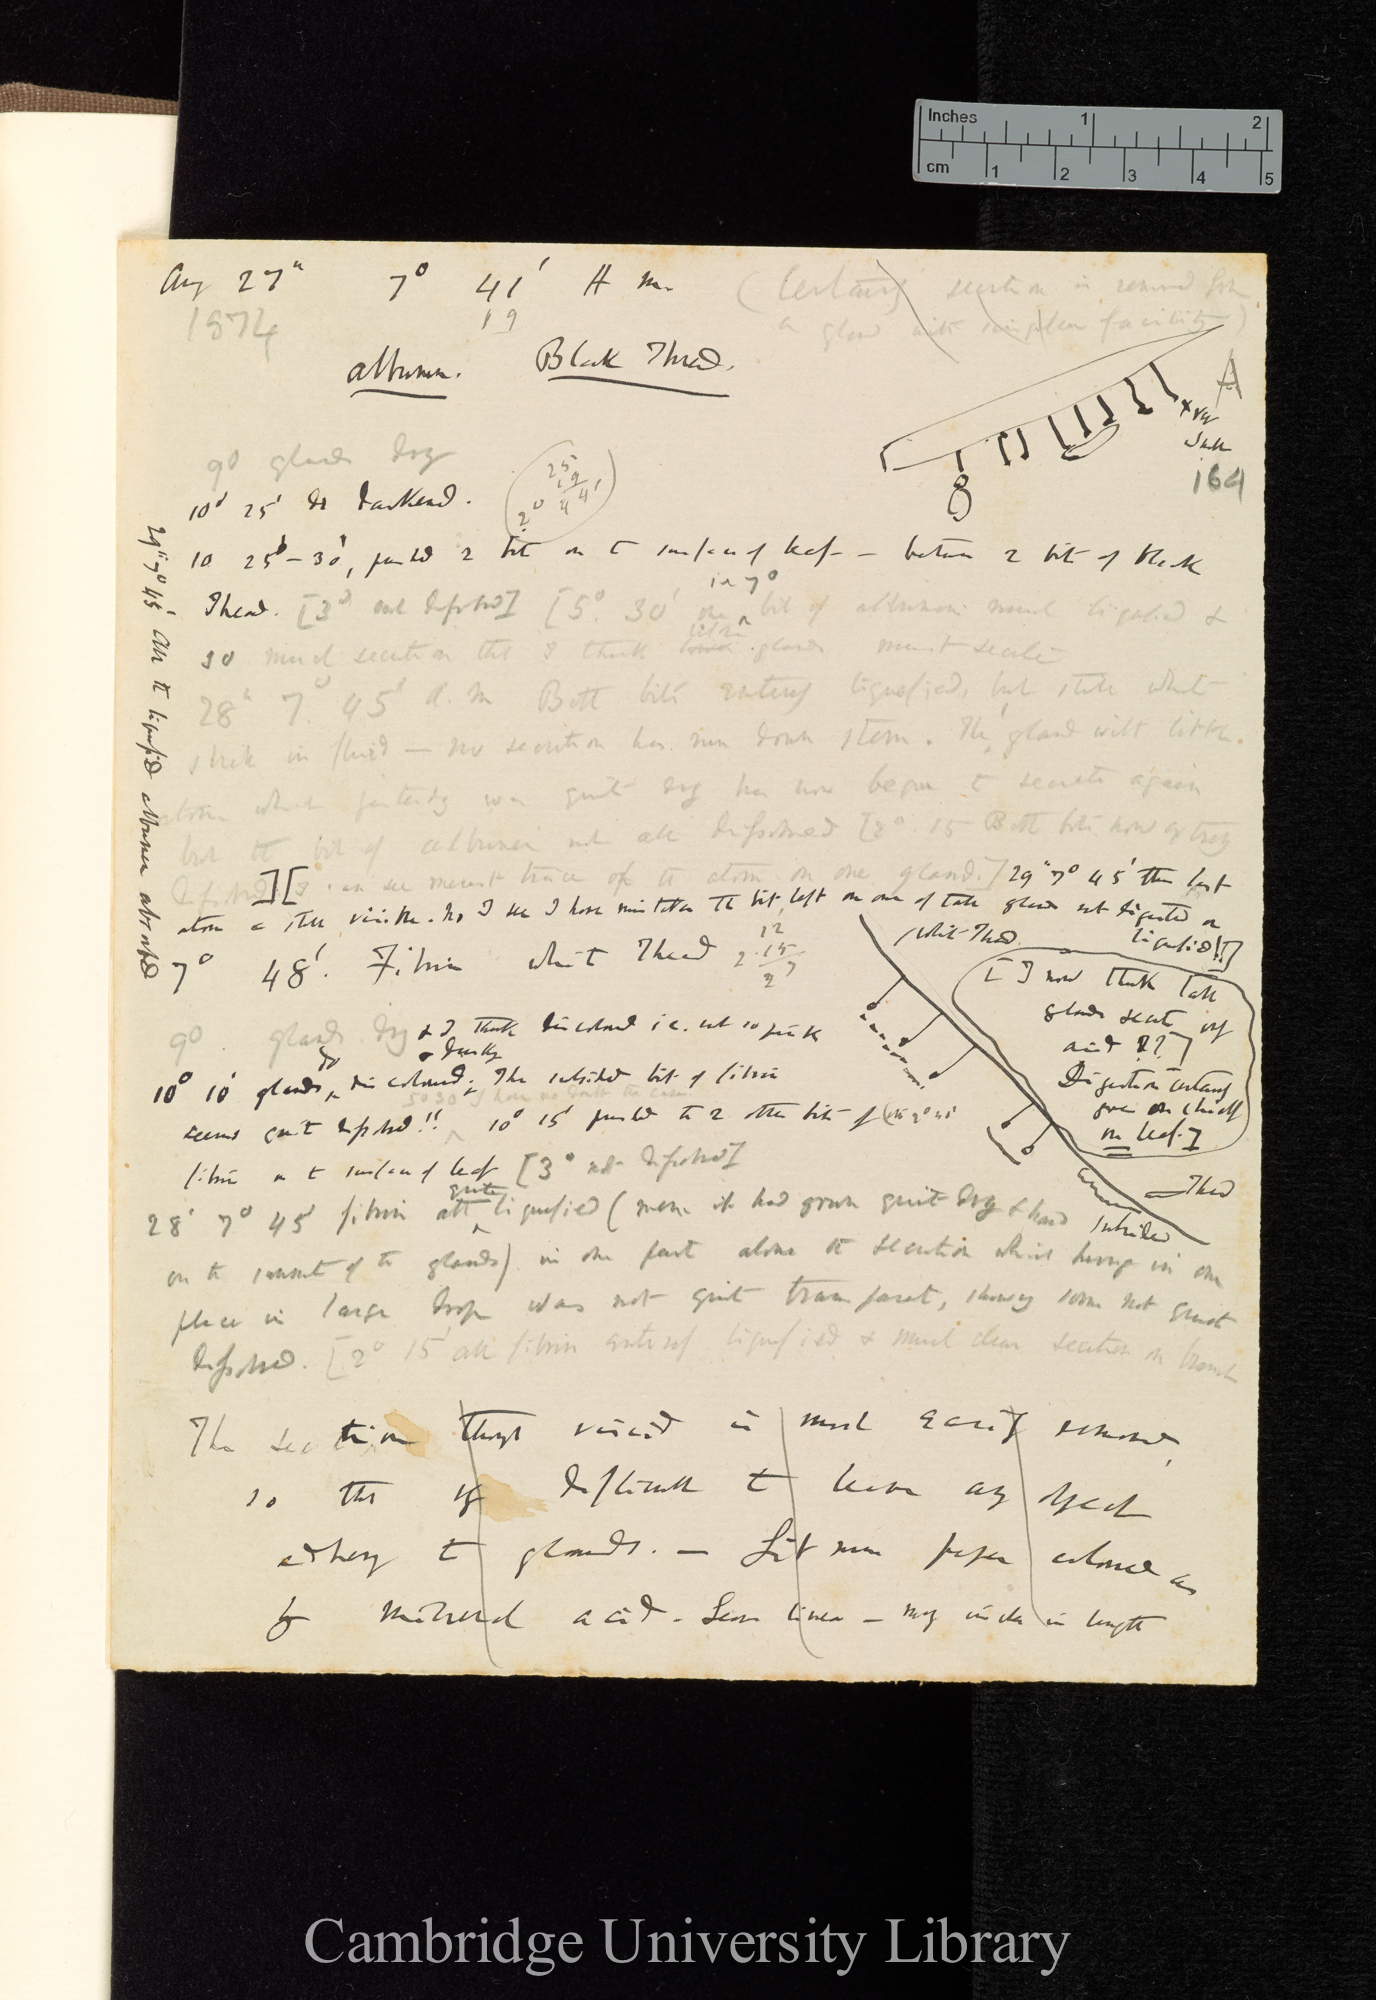 Inches 1 2
cm 1 2 3 4 5
Aug 27th 7° 41' A m.
19
(Certainly secretion is removed from
a gland with singular facility)
1874
albumen. Black Thread.
A
164
8
9° glands dry
25
19
2° 44'
10° 25' do darkened.
10 25'–30', pushed 2 bits on to surface of leaf — between 2 bits of black
in 7°
Thread. [3° not dissolved] [5° 30' one bit of albumen much liquefied &
so much secretion that I think glands must secrete
28th 7° 45' A.M Both bits entirely liquefied, but little white
in fluid — no secretion has run down stem. The gland with little
atom which yesterday was quite dry has now begun to secrete again
but the bit of albumen not all dissolved [2° 15 Both bits now entirely
dissolved] [I can see merest trace of the atom on one gland.] 29th 7° 45' this last
atom is still visible. No I see I have mistaken The bit left on one of tall glands not digested or
liquefied!!]
29th 7° 45' All the liquefied albumen absorbed
7° 48'. Fibrin white Thread
12
2.15
27
white Thread
[I now think Tall
glands secrete
acid ??]
Digestion certainly
goes on chiefly
on leaf.]
9° glands dry & I think discoloured i.e. not so pink
& dusky
10° 10' glands do discoloured. The subsided bit of fibrin
5° 30' I have no doubt the case
seems quite dissolved!! 10° 15' pushed the 2 other bits of
fibrin on to surface of leaf [3° not dissolved]
Thread
subsided
quite
28' 7° 45' fibrin all liquefied ( it had grown quite dry & hard
on the summit of the glands) in one part alone the secretion which hung in one
place in large drop was not quite transparent, showing some not quite
dissolved. [2° 15' all fibrin entirely liquefied & much clear secretion on
The secretion though viscid is most easily removed,
so that difficult to leave any speck
adhering to glands. — Litmus paper coloured as
by mineral acid - Leaves linear — many inches in length
Cambridge University Library